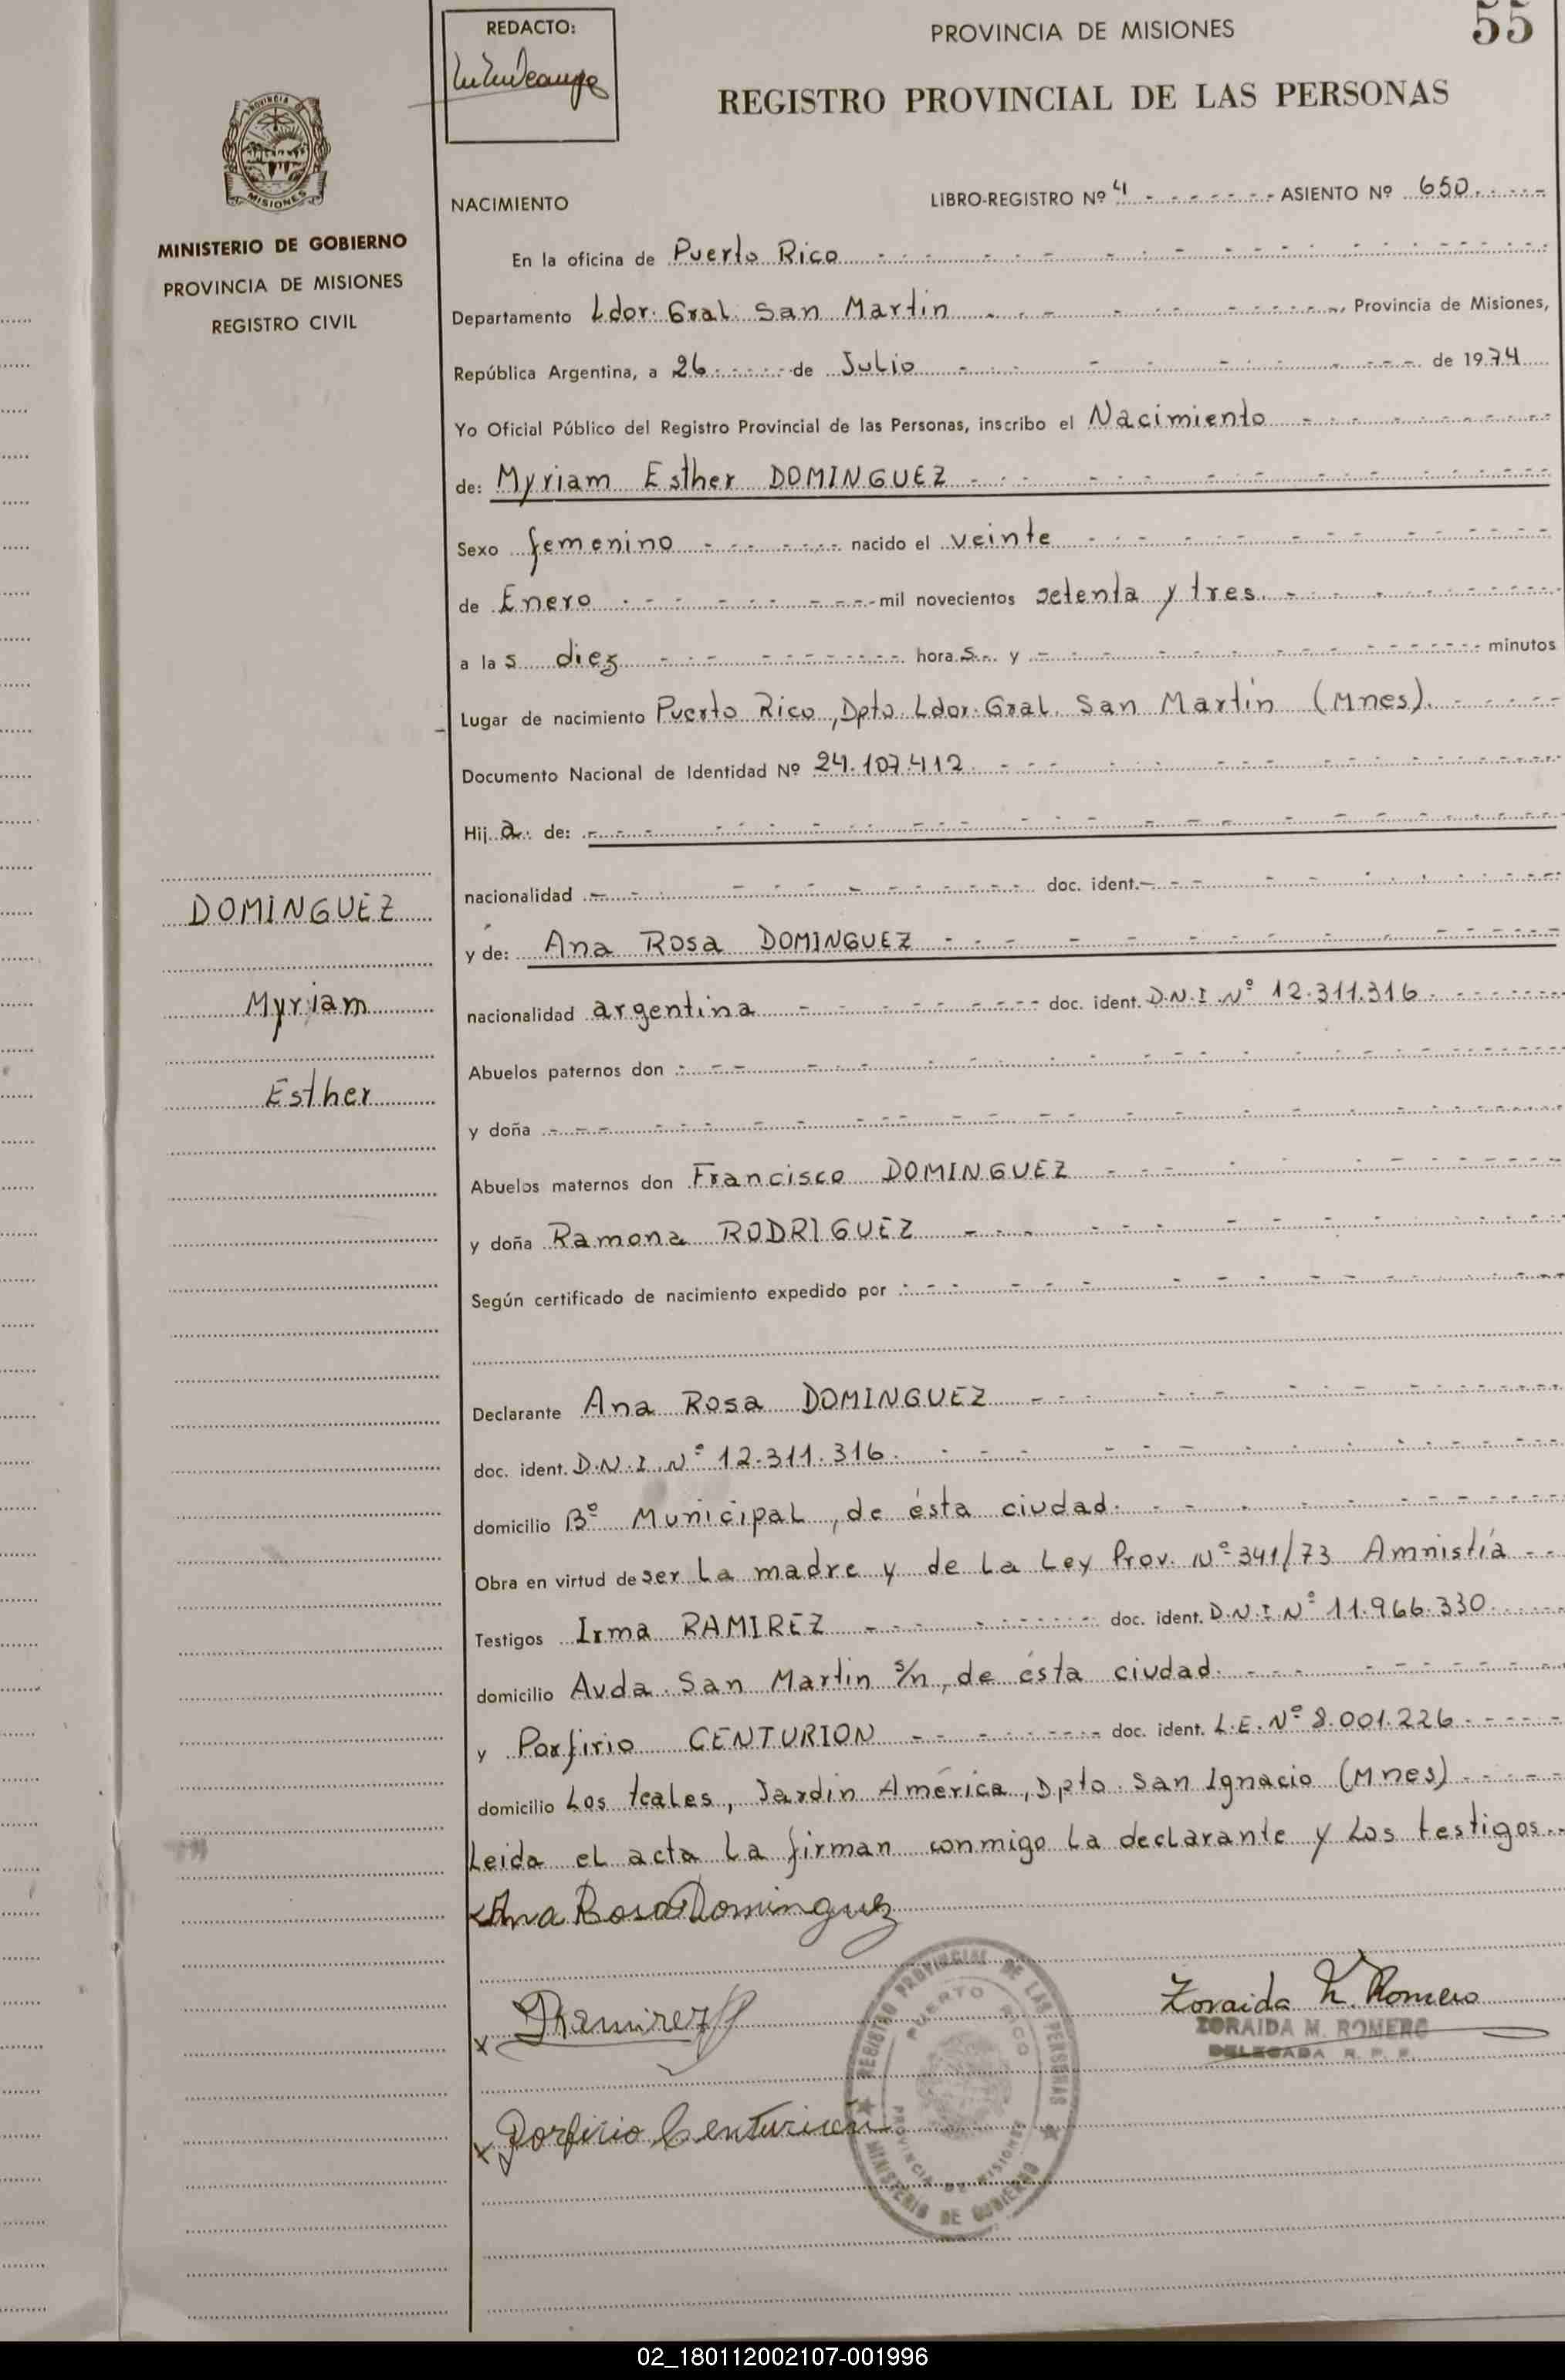 REDACTO:
PROVINCIA DE MISIONES
55
REGISTRO PROVINCIAL DE LAS PERSONAS
MISIONES
MINISTERIO DE GOBIERNO
PROVINCIA DE MISIONES
REGISTRO CIVIL
NACIMIENTO
LIBRO-REGISTRO Nº 4 ASIENTO Nº 650
En la oficina de Puerto Rico
Departamento Ldor. Gral. San Martin, Provincia de Misiones,
República Argentina, a 26 de Julio de 1974
Yo Oficial Público del Registro Provincial de las Personas, inscribo el Nacimiento
de: Myriam Esther DOMINGUEZ
Sexo femenino nacido el veinte
de Enero mil novecientos setenta y tres.
a las diez horas y minutos
Lugar de nacimiento Puerto Rico, Dpto. Ldor. Gral. San Martín (Mnes).
Documento Nacional de Identidad Nº 24.107.412
Hija de:
nacionalidad doc. ident.
y de: Ana Rosa DOMINGUEZ
nacionalidad argentina doc. ident. D.N.I. Nº 12.311.316
Abuelos paternos don
y doña
Abuelos maternos don Francisco DOMINGUEZ
y doña Ramona RODRIGUEZ
Según certificado de nacimiento expedido por
Declarante Ana Rosa DOMINGUEZ
doc. ident. D.N.I. Nº 12.311.316.
domicilio Bº Municipal, de ésta ciudad.
Obra en virtud de ser la madre y de la Ley Prov. Nº 341/73 Amnistía
Testigos Irma RAMIREZ doc. ident. D.N.I. Nº 11.966.330
domicilio Avda. San Martin s/n, de ésta ciudad.
y Porfirio CENTURION doc. ident. L.E. Nº 8.001.226
domicilio Los teales, Jardín América, Dpto. San Ignacio (Mnes)
Leida el acta la firman conmigo la declarante y los testigos.
DOMINGUEZ
Myriam
Esther
Ana Rosa Dominguez
x Ramirez
x Porfirio Centurión
REGISTRO PROVINCIAL DE LAS PERSONAS
PUERTO RICO
PROVINCIA DE MISIONES
MINISTERIO DE GOBIERNO
Zoraida M. Romero
ZORAIDA M. ROMERO
DELEGADA R. P. P.
02_180112002107-001996